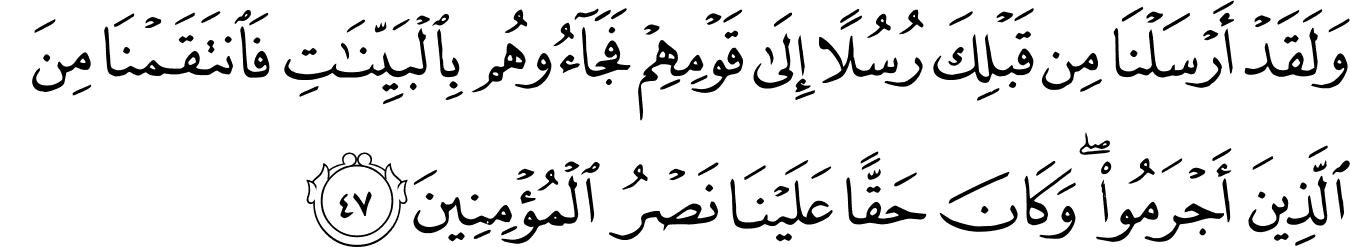 وَلَقَدْ أَرْسَلْنَا مِن قَبْلِكَ رُسُلًا إِلَىٰ قَوْمِهِمْ فَجَآءُوهُم بِٱلْبَيِّنَـٰتِ فَٱنتَقَمْنَا مِنَ
ٱلَّذِينَ أَجْرَمُوا۟ ۖ وَكَانَ حَقًّا عَلَيْنَا نَصْرُ ٱلْمُؤْمِنِينَ ٤٧